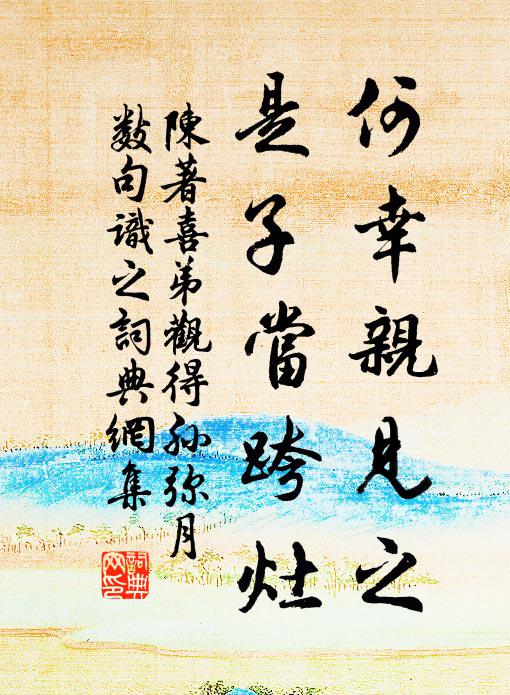 何幸親見之
是子當跨灶
陳著喜弟觀得孙弥月
数句識之詞典網集
詞典